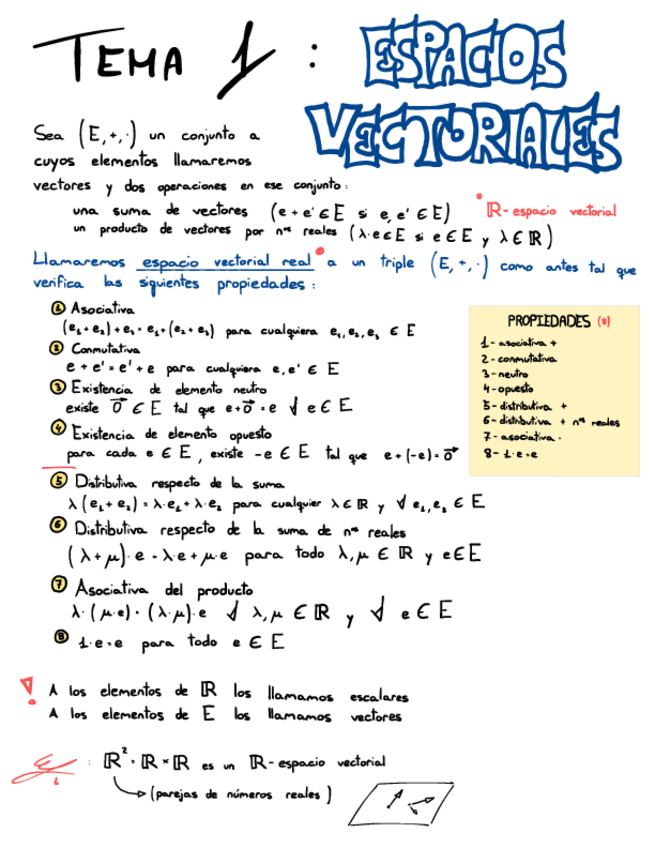 TEMA 1 : ESPACIOS
VECTORIALES
Sea (E, +, ·) un conjunto a
cuyos elementos llamaremos
vectores y dos operaciones en ese conjunto:
una suma de vectores (e + e' ∈ E si e, e' ∈ E)
un producto de vectores por nos reales (λ·e ∈ E si e ∈ E y λ ∈ ℝ)
* ℝ-espacio vectorial
Llamaremos espacio vectorial real * a un triple (E, +, ·) como antes tal que
verifica las siguientes propiedades:
① Asociativa
(e₁ + e₂) + e₃ = e₁ + (e₂ + e₃) para cualquiera e₁, e₂, e₃ ∈ E
② Conmutativa
e + e' = e' + e para cualquiera e, e' ∈ E
③ Existencia de elemento neutro
existe 0⃗ ∈ E tal que e + 0⃗ = e ∀ e ∈ E
④ Existencia de elemento opuesto
para cada e ∈ E, existe -e ∈ E tal que e + (-e) = 0⃗
⑤ Distributiva respecto de la suma
λ(e₁ + e₂) = λ·e₁ + λ·e₂ para cualquier λ ∈ ℝ y ∀ e₁, e₂ ∈ E
⑥ Distributiva respecto de la suma de nos reales
(λ + μ)·e = λ·e + μ·e para todo λ, μ ∈ ℝ y e ∈ E
⑦ Asociativa del producto
λ·(μ·e) = (λ·μ)·e ∀ λ, μ ∈ ℝ y ∀ e ∈ E
⑧ 1·e = e para todo e ∈ E
PROPIEDADES (8)
1- asociativa +
2- conmutativa
3- neutro
4- opuesto
5- distributiva +
6- distributiva + nos reales
7- asociativa ·
8- 1·e = e
! A los elementos de ℝ los llamamos escalares
A los elementos de E los llamamos vectores
Ej 1 : ℝ² = ℝ × ℝ es un ℝ-espacio vectorial
(parejas de números reales)